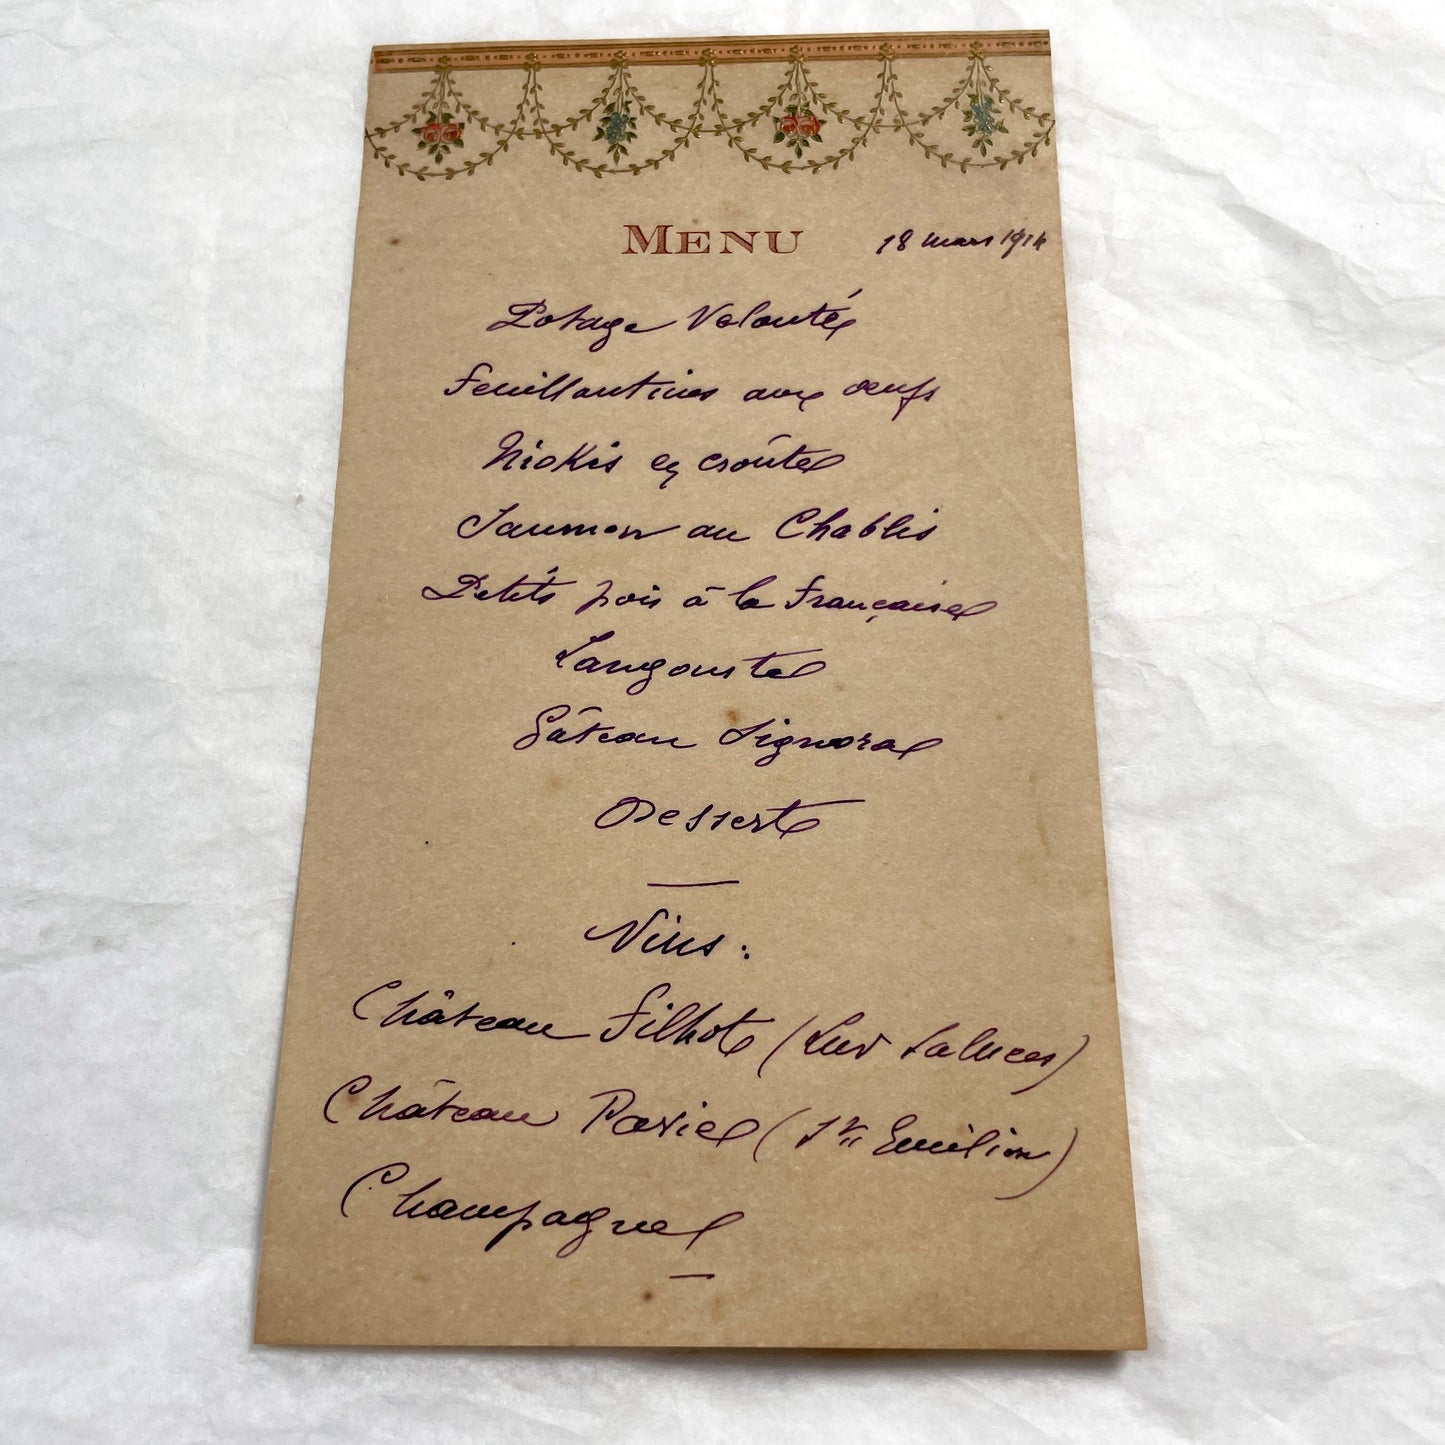 MENU
18 mars 1914
Potage Velouté
Feuillantines aux œufs
Niokis en croûte
Saumon au Chablis
Petits pois à la Française
Langouste
Gâteau Signora
Dessert
Vins :
Château Filhot (Lur Saluces)
Château Pavie (St Emilion)
Champagne